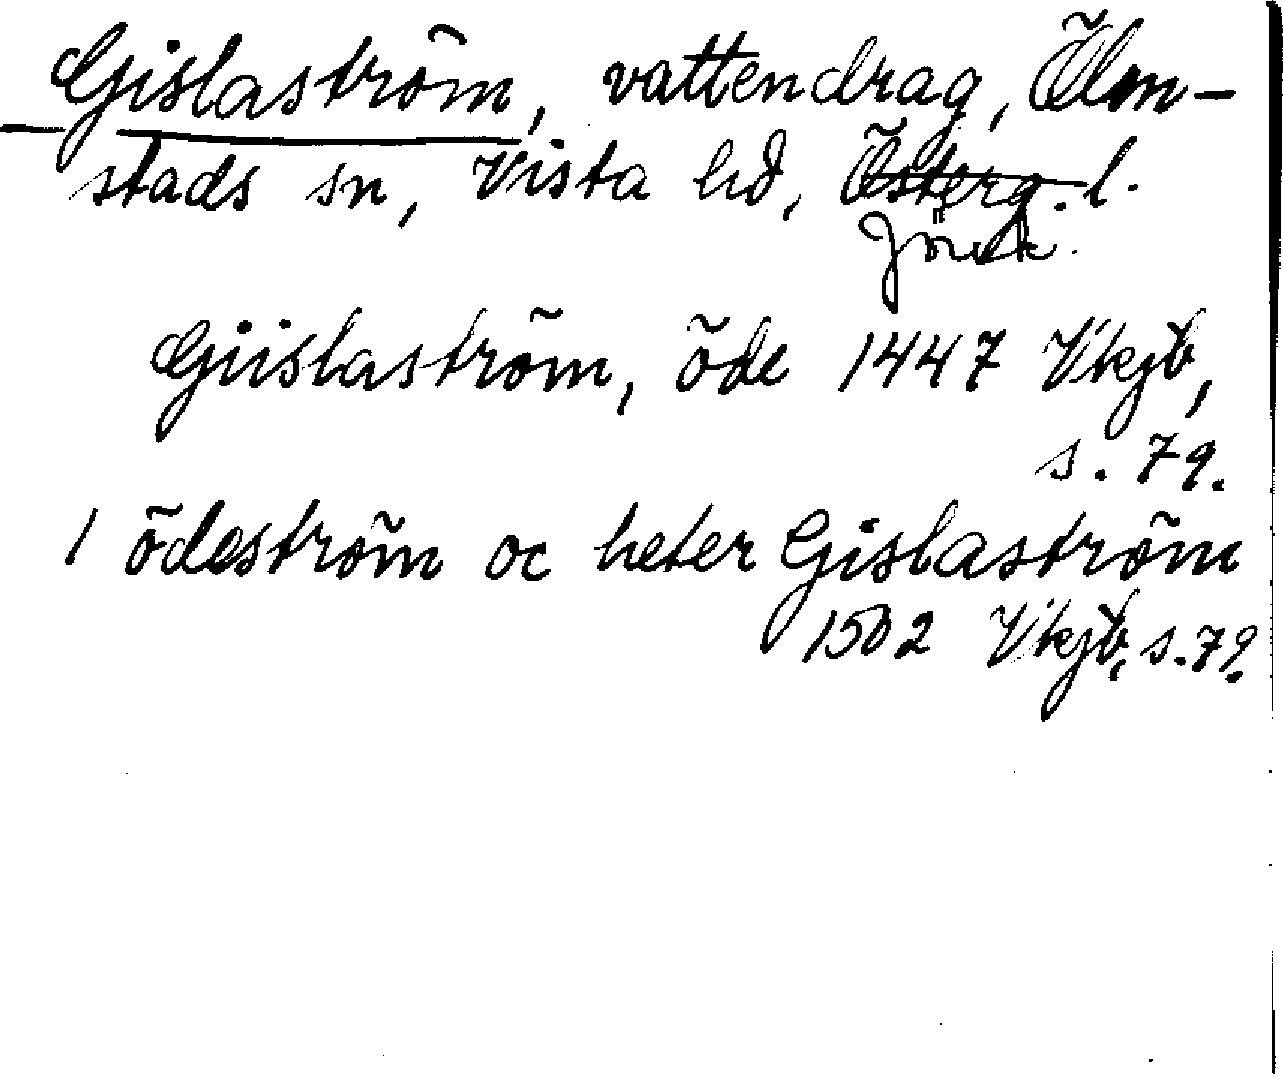 Gislaström, vattendrag, Ölm-
stads sn, Vista hd, Österg. l.
Jönk.
Giislaström, öde 1447 Vkjb,
s. 79.
1 ödeström oc heter Gislaström
1502 Vkjb, s. 79.